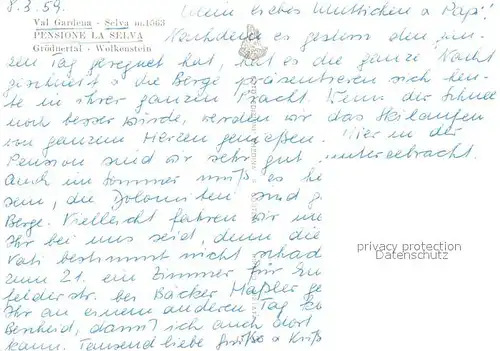 8.3.59.
Mein liebes Muttichen u Papi!
Val Gardena - Selva m.1563
PENSIONE LA SELVA
Grödnertal - Wolkenstein
Nachdem es gestern den gan-
zen Tag geregnet hat, hat es die ganze Nacht
geschneit u die Berge präsentieren sich heu-
te in ihrer ganzen Pracht. Wenn der Schnee
noch besser würde, werden wir das Skilaufen
von ganzem Herzen genießen. Hier in der
Pension sind wir sehr gut untergebracht.
Auch im Sommer muß es
sein, die Dolomiten sind
Berge. Vielleicht fahren wir
Ihr bei uns seid, denn die
Vati bestimmt nicht schad
zum 21. ein Zimmer für
felderstr. bei Bäcker Haßler
Ihr an einem anderen Tag
Bescheid, damit ich auch dort
kann. Tausend liebe Grüße u
privacy protection
Datenschutz